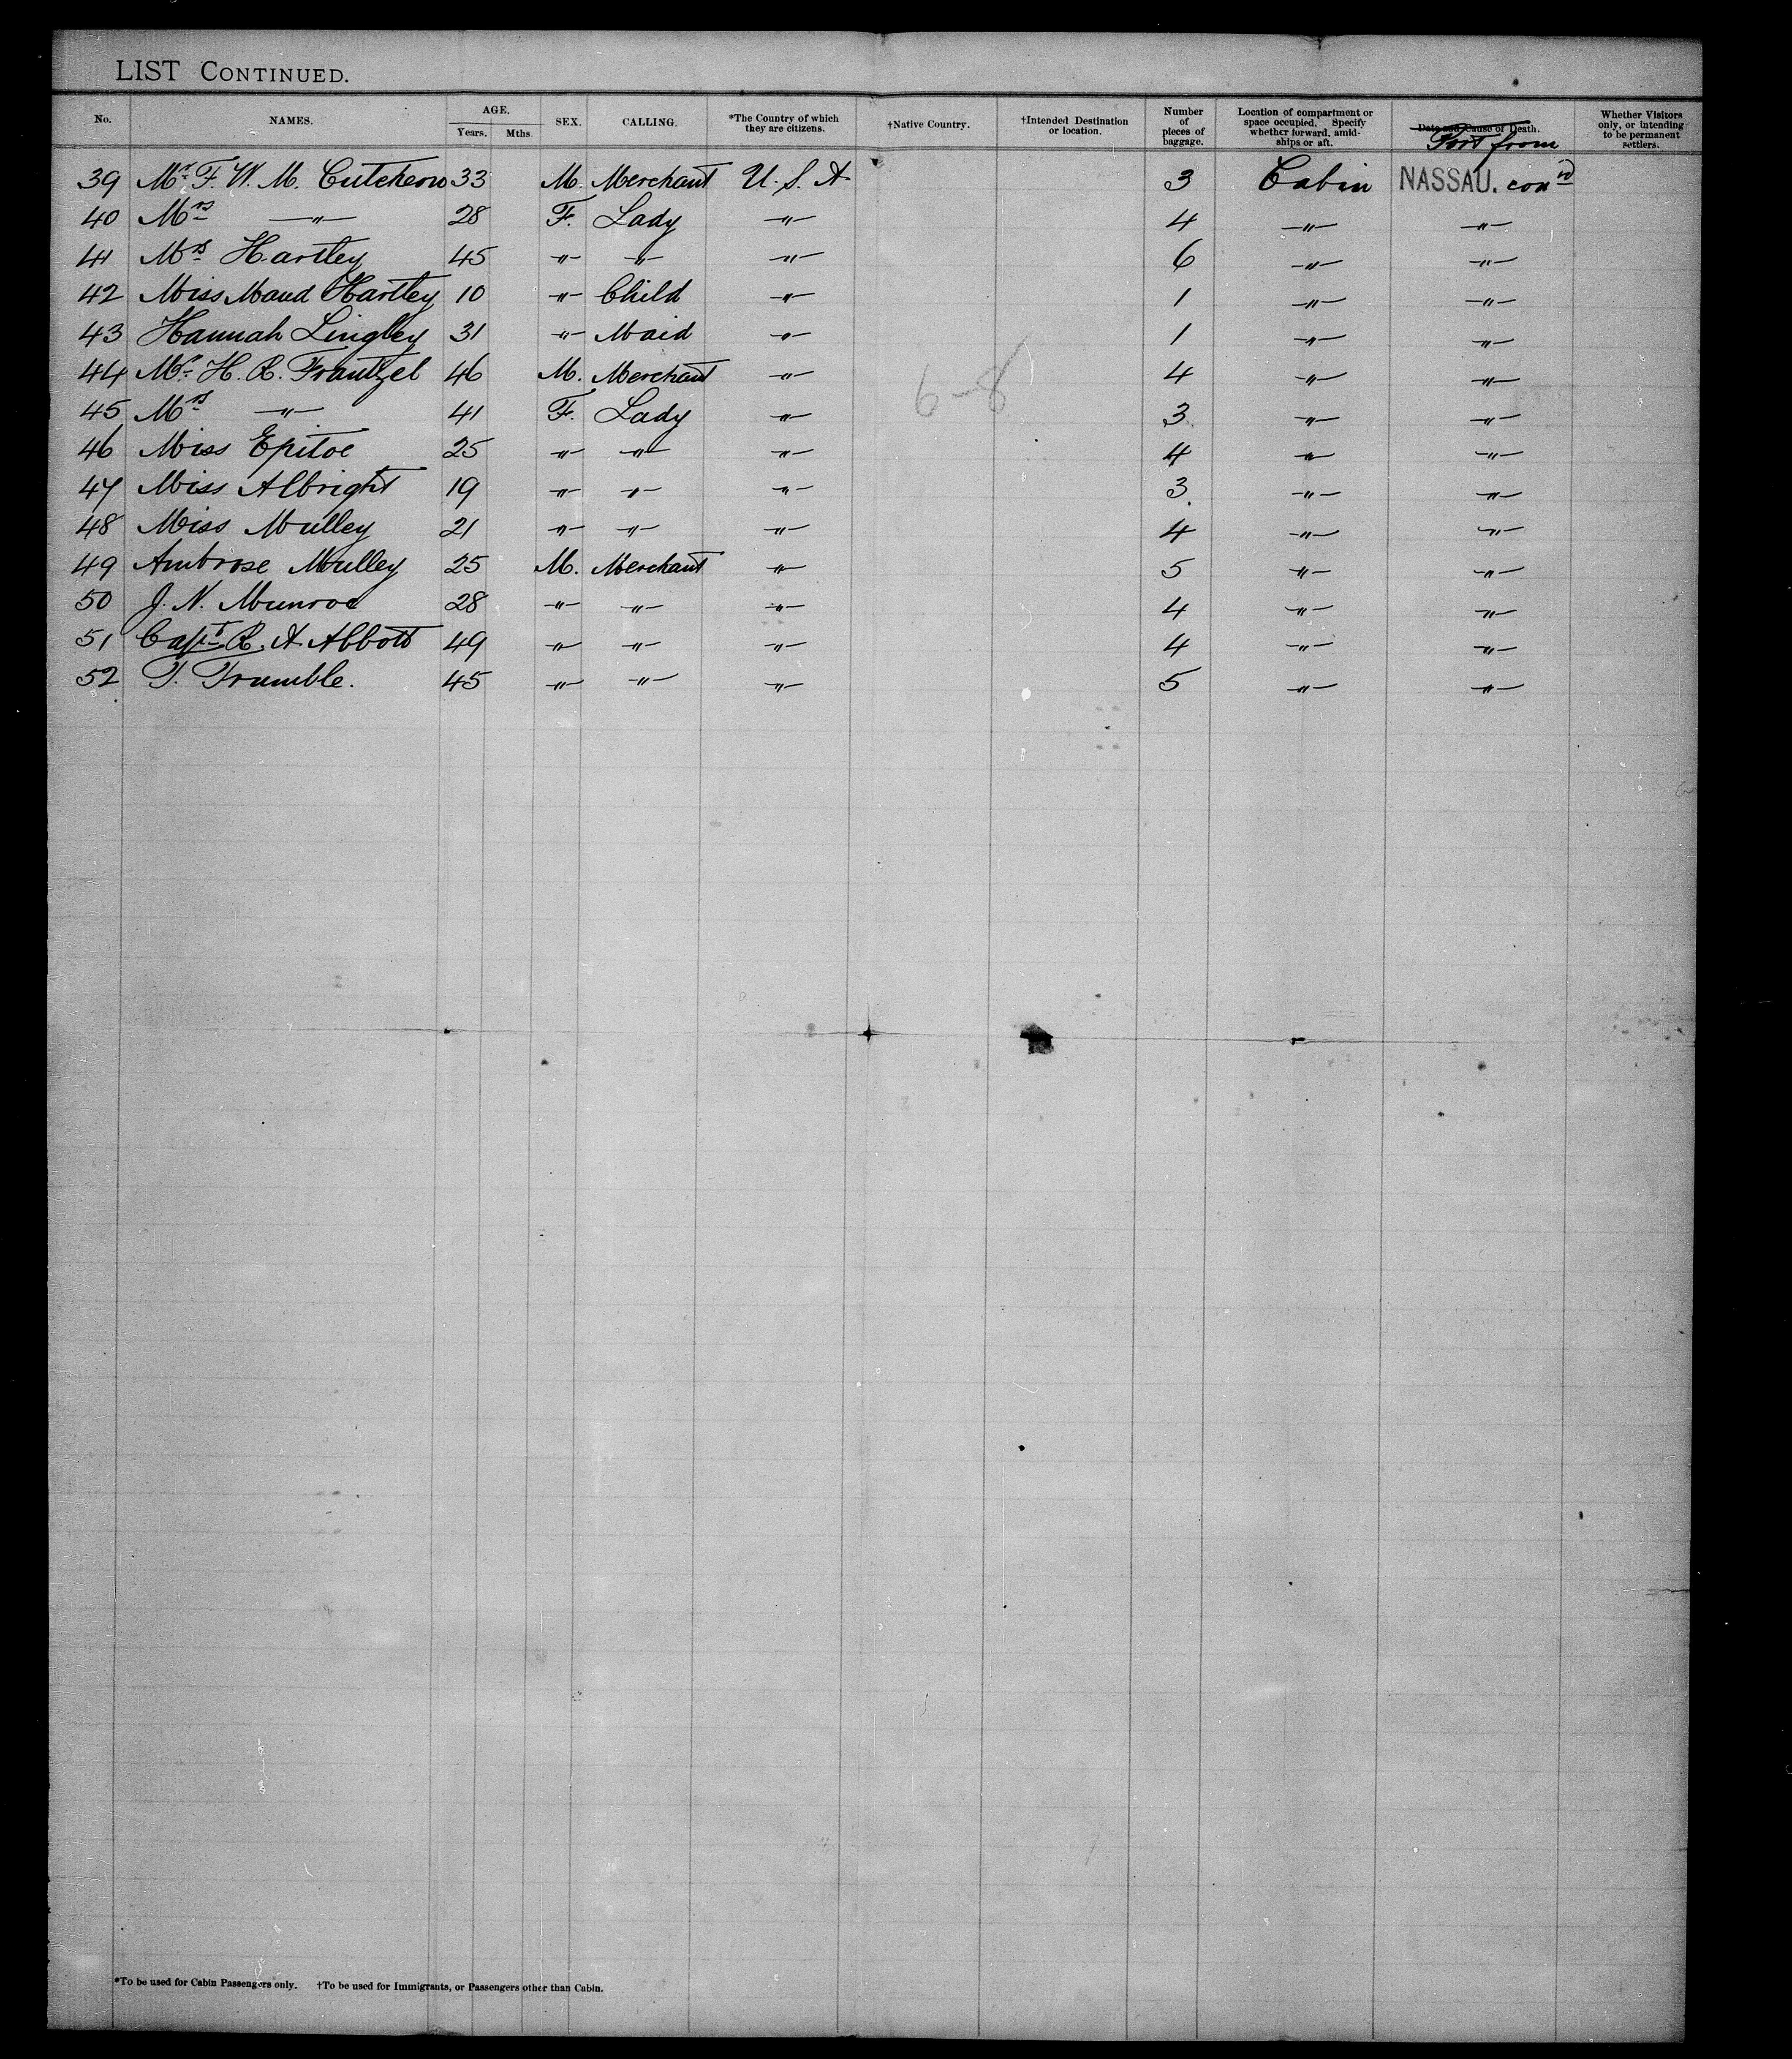 LIST CONTINUED.
No. NAMES. AGE. Years. Mths. SEX. CALLING. *The Country of which they are citizens. †Native Country. †Intended Destination or location. Number of pieces of baggage. Location of compartment or space occupied. Specify whether forward, amidships or aft. Date and Cause of Death. Port from Whether Visitors only, or intending to be permanent settlers.
39 Mr. F. W. M. Cutcheon 33 M. Merchant U.S.A 3 Cabin NASSAU. cond
40 Mrs —"— 28 F. Lady —"— 4 —"— —"—
41 Mrs Hartley 45 —"— —"— —"— 6 —"— —"—
42 Miss Maud Hartley 10 —"— Child —"— 1 —"— —"—
43 Hannah Lingley 31 —"— Maid —"— 1 —"— —"—
44 Mr. H. R. Frantzel 46 M. Merchant —"— 4 —"— —"—
45 Mrs —"— 41 F. Lady —"— 3 —"— —"—
6-8
46 Miss Epitoe 25 —"— —"— —"— 4 —"— —"—
47 Miss Albright 19 —"— —"— —"— 3 —"— —"—
48 Miss Mulley 21 —"— —"— —"— 4 —"— —"—
49 Ambrose Mulley 25 M. Merchant —"— 5 —"— —"—
50 J. N. Munroe 28 —"— —"— —"— 4 —"— —"—
51 Capt. R. A. Abbott 49 —"— —"— —"— 4 —"— —"—
52 T. Trumble. 45 —"— —"— —"— 5 —"— —"—
*To be used for Cabin Passengers only. †To be used for Immigrants, or Passengers other than Cabin.